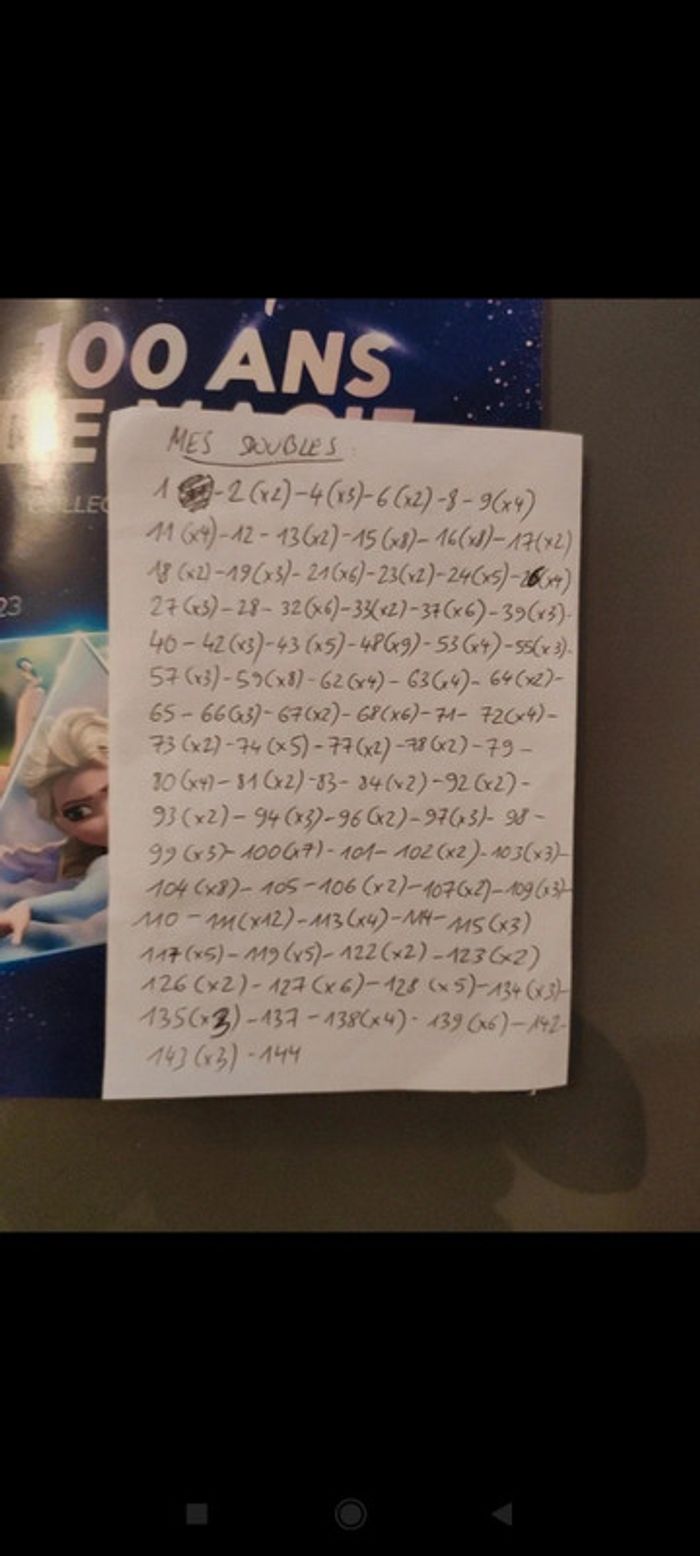 100 ANS
DE MAGIE
COLLEC
23
MES DOUBLES
1 - 2 (x2) - 4 (x3) - 6 (x2) - 8 - 9 (x4)
11 (x4) - 12 - 13 (x2) - 15 (x8) - 16 (x8) - 17 (x2)
18 (x2) - 19 (x3) - 21 (x6) - 23 (x2) - 24 (x5) - 26 (x4)
27 (x3) - 28 - 32 (x6) - 33 (x2) - 37 (x6) - 39 (x3) -
40 - 42 (x3) - 43 (x5) - 48 (x9) - 53 (x4) - 55 (x3) -
57 (x3) - 59 (x8) - 62 (x4) - 63 (x4) - 64 (x2) -
65 - 66 (x3) - 67 (x2) - 68 (x6) - 71 - 72 (x4) -
73 (x2) - 74 (x5) - 77 (x2) - 78 (x2) - 79 -
80 (x4) - 81 (x2) - 83 - 84 (x2) - 92 (x2) -
93 (x2) - 94 (x3) - 96 (x2) - 97 (x3) - 98 -
99 (x3) - 100 (x7) - 101 - 102 (x2) - 103 (x3) -
104 (x8) - 105 - 106 (x2) - 107 (x2) - 109 (x3) -
110 - 111 (x12) - 113 (x4) - 114 - 115 (x3)
117 (x5) - 119 (x5) - 122 (x2) - 123 (x2)
126 (x2) - 127 (x6) - 128 (x5) - 134 (x3) -
135 (x3) - 137 - 138 (x4) - 139 (x6) - 142 -
143 (x3) - 144